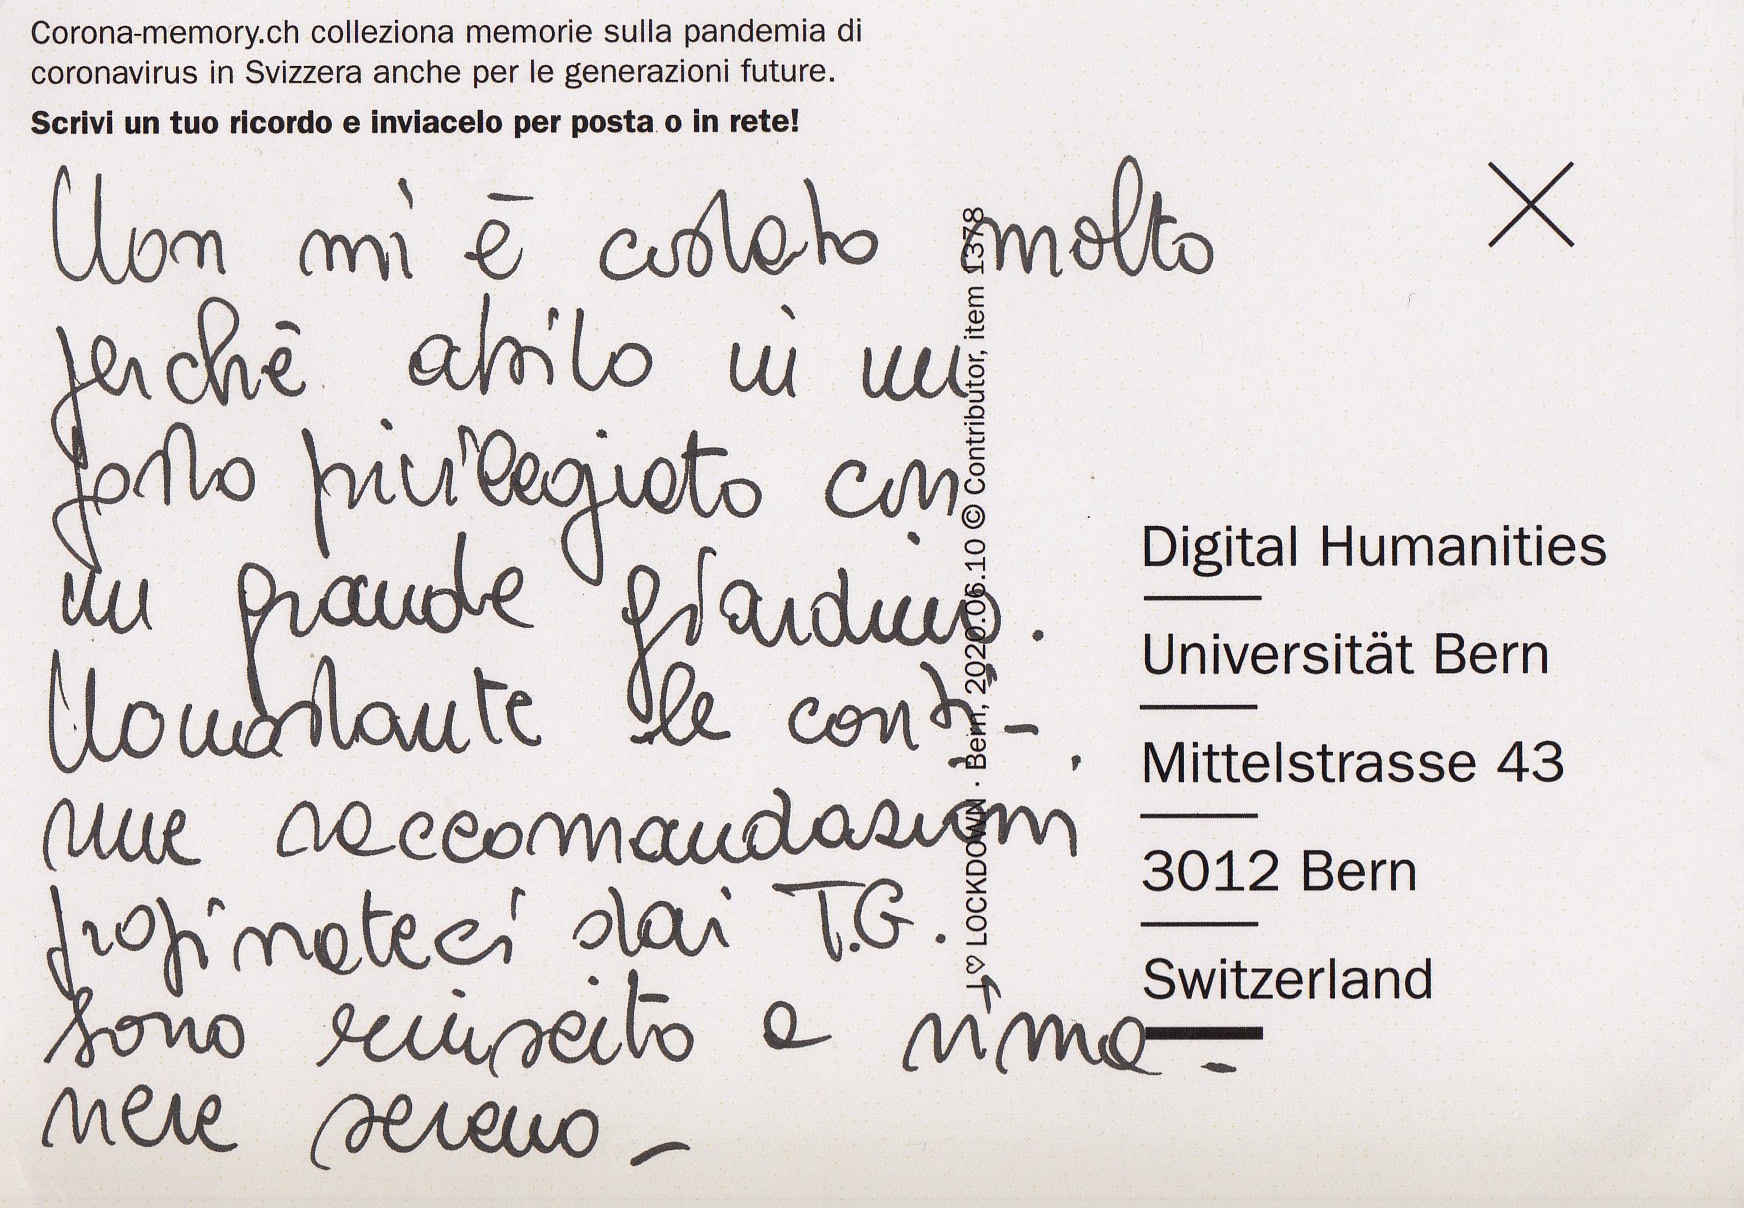 Corona-memory.ch colleziona memorie sulla pandemia di
coronavirus in Svizzera anche per le generazioni future.
Scrivi un tuo ricordo e inviacelo per posta o in rete!
Non mi è costato molto
perchè abito in un
posto privilegiato con
un grande giardino.
Nonostante le conti-
nue raccomandazioni
propinateci dai T.G.
sono riuscito a rima-
nere sereno_
I ♡ LOCKDOWN · Bern, 2020.06.10 © Contributor, item 1378
Digital Humanities
Universität Bern
Mittelstrasse 43
3012 Bern
Switzerland